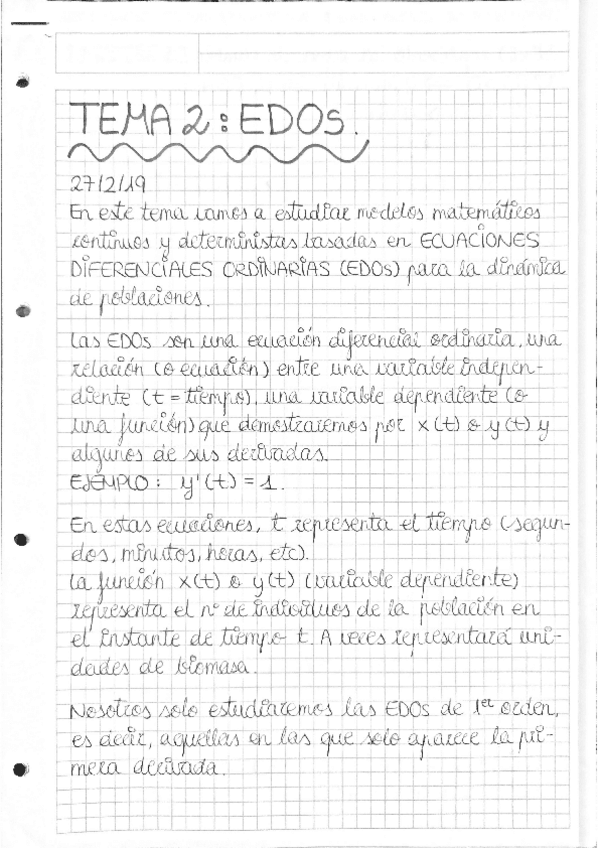 TEMA 2: EDOS.
27/2/19
En este tema vamos a estudiar modelos matemáticos
continuos y deterministas basadas en ECUACIONES
DIFERENCIALES ORDINARIAS (EDOs) para la dinámica
de poblaciones.
Las EDOs son una ecuación diferencial ordinaria, una
relación (o ecuación) entre una variable indepen-
diente (t = tiempo), una variable dependiente (o
una función) que demostraremos por x(t) o y(t) y
algunos de sus derivadas.
EJEMPLO: y'(t) = 1.
En estas ecuaciones, t representa el tiempo (segun-
dos, minutos, horas, etc).
La función x(t) o y(t) (variable dependiente)
representa el nº de individuos de la población en
el instante de tiempo t. A veces representará uni-
dades de biomasa.
Nosotros solo estudiaremos las EDOs de 1er orden,
es decir, aquellas en las que solo aparece la pri-
mera derivada.